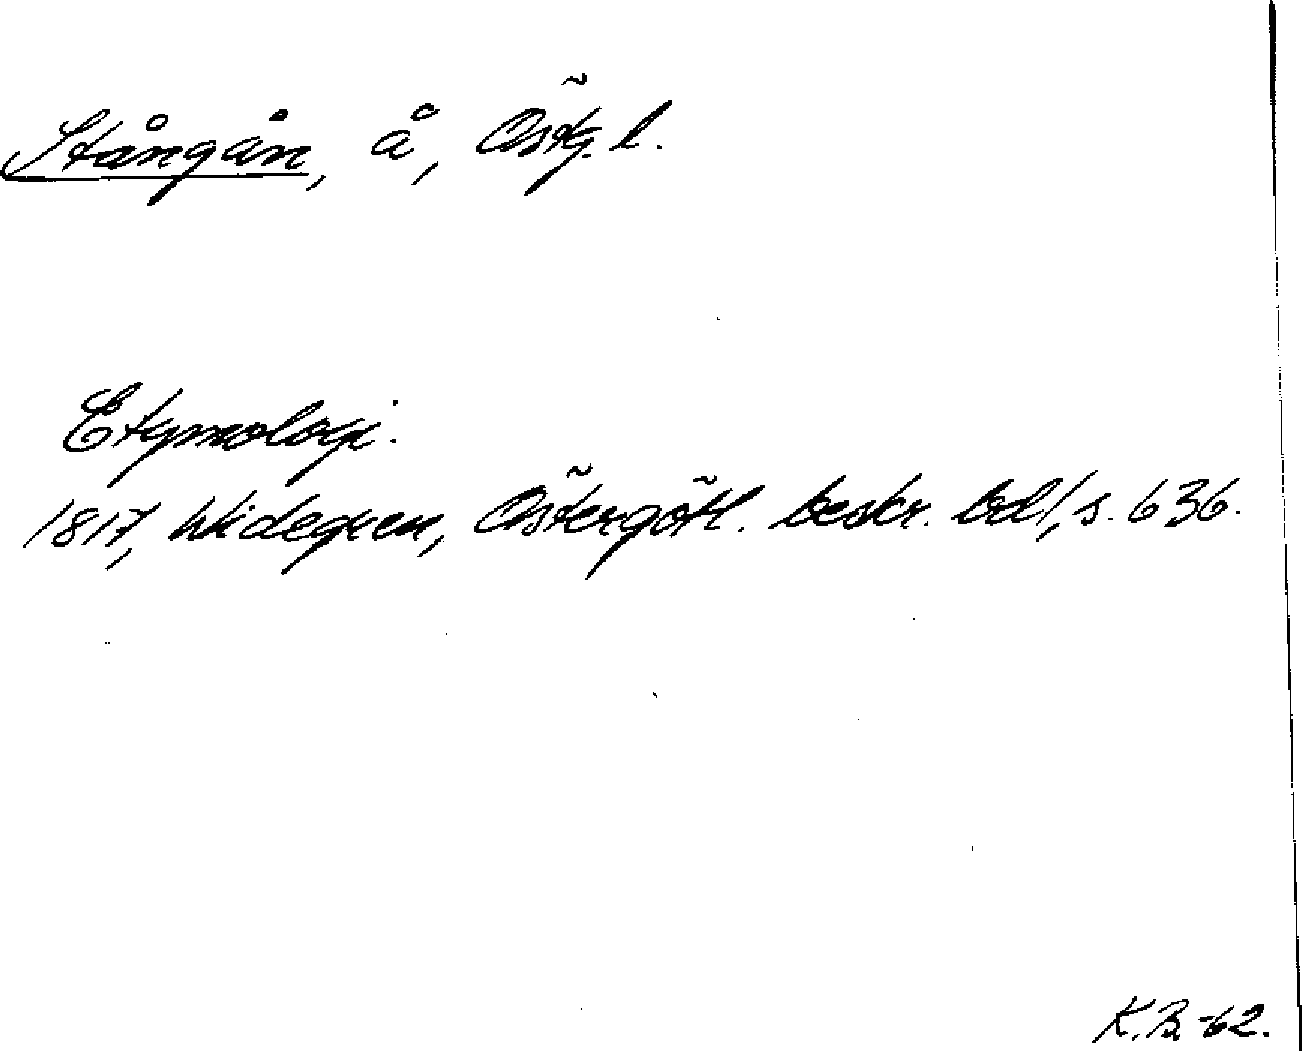 Stångån, å, Östg. l.
Etymologi.
1817, Widegren, Östergötl. beskr. bd 1, s. 636.
K.B. -62.